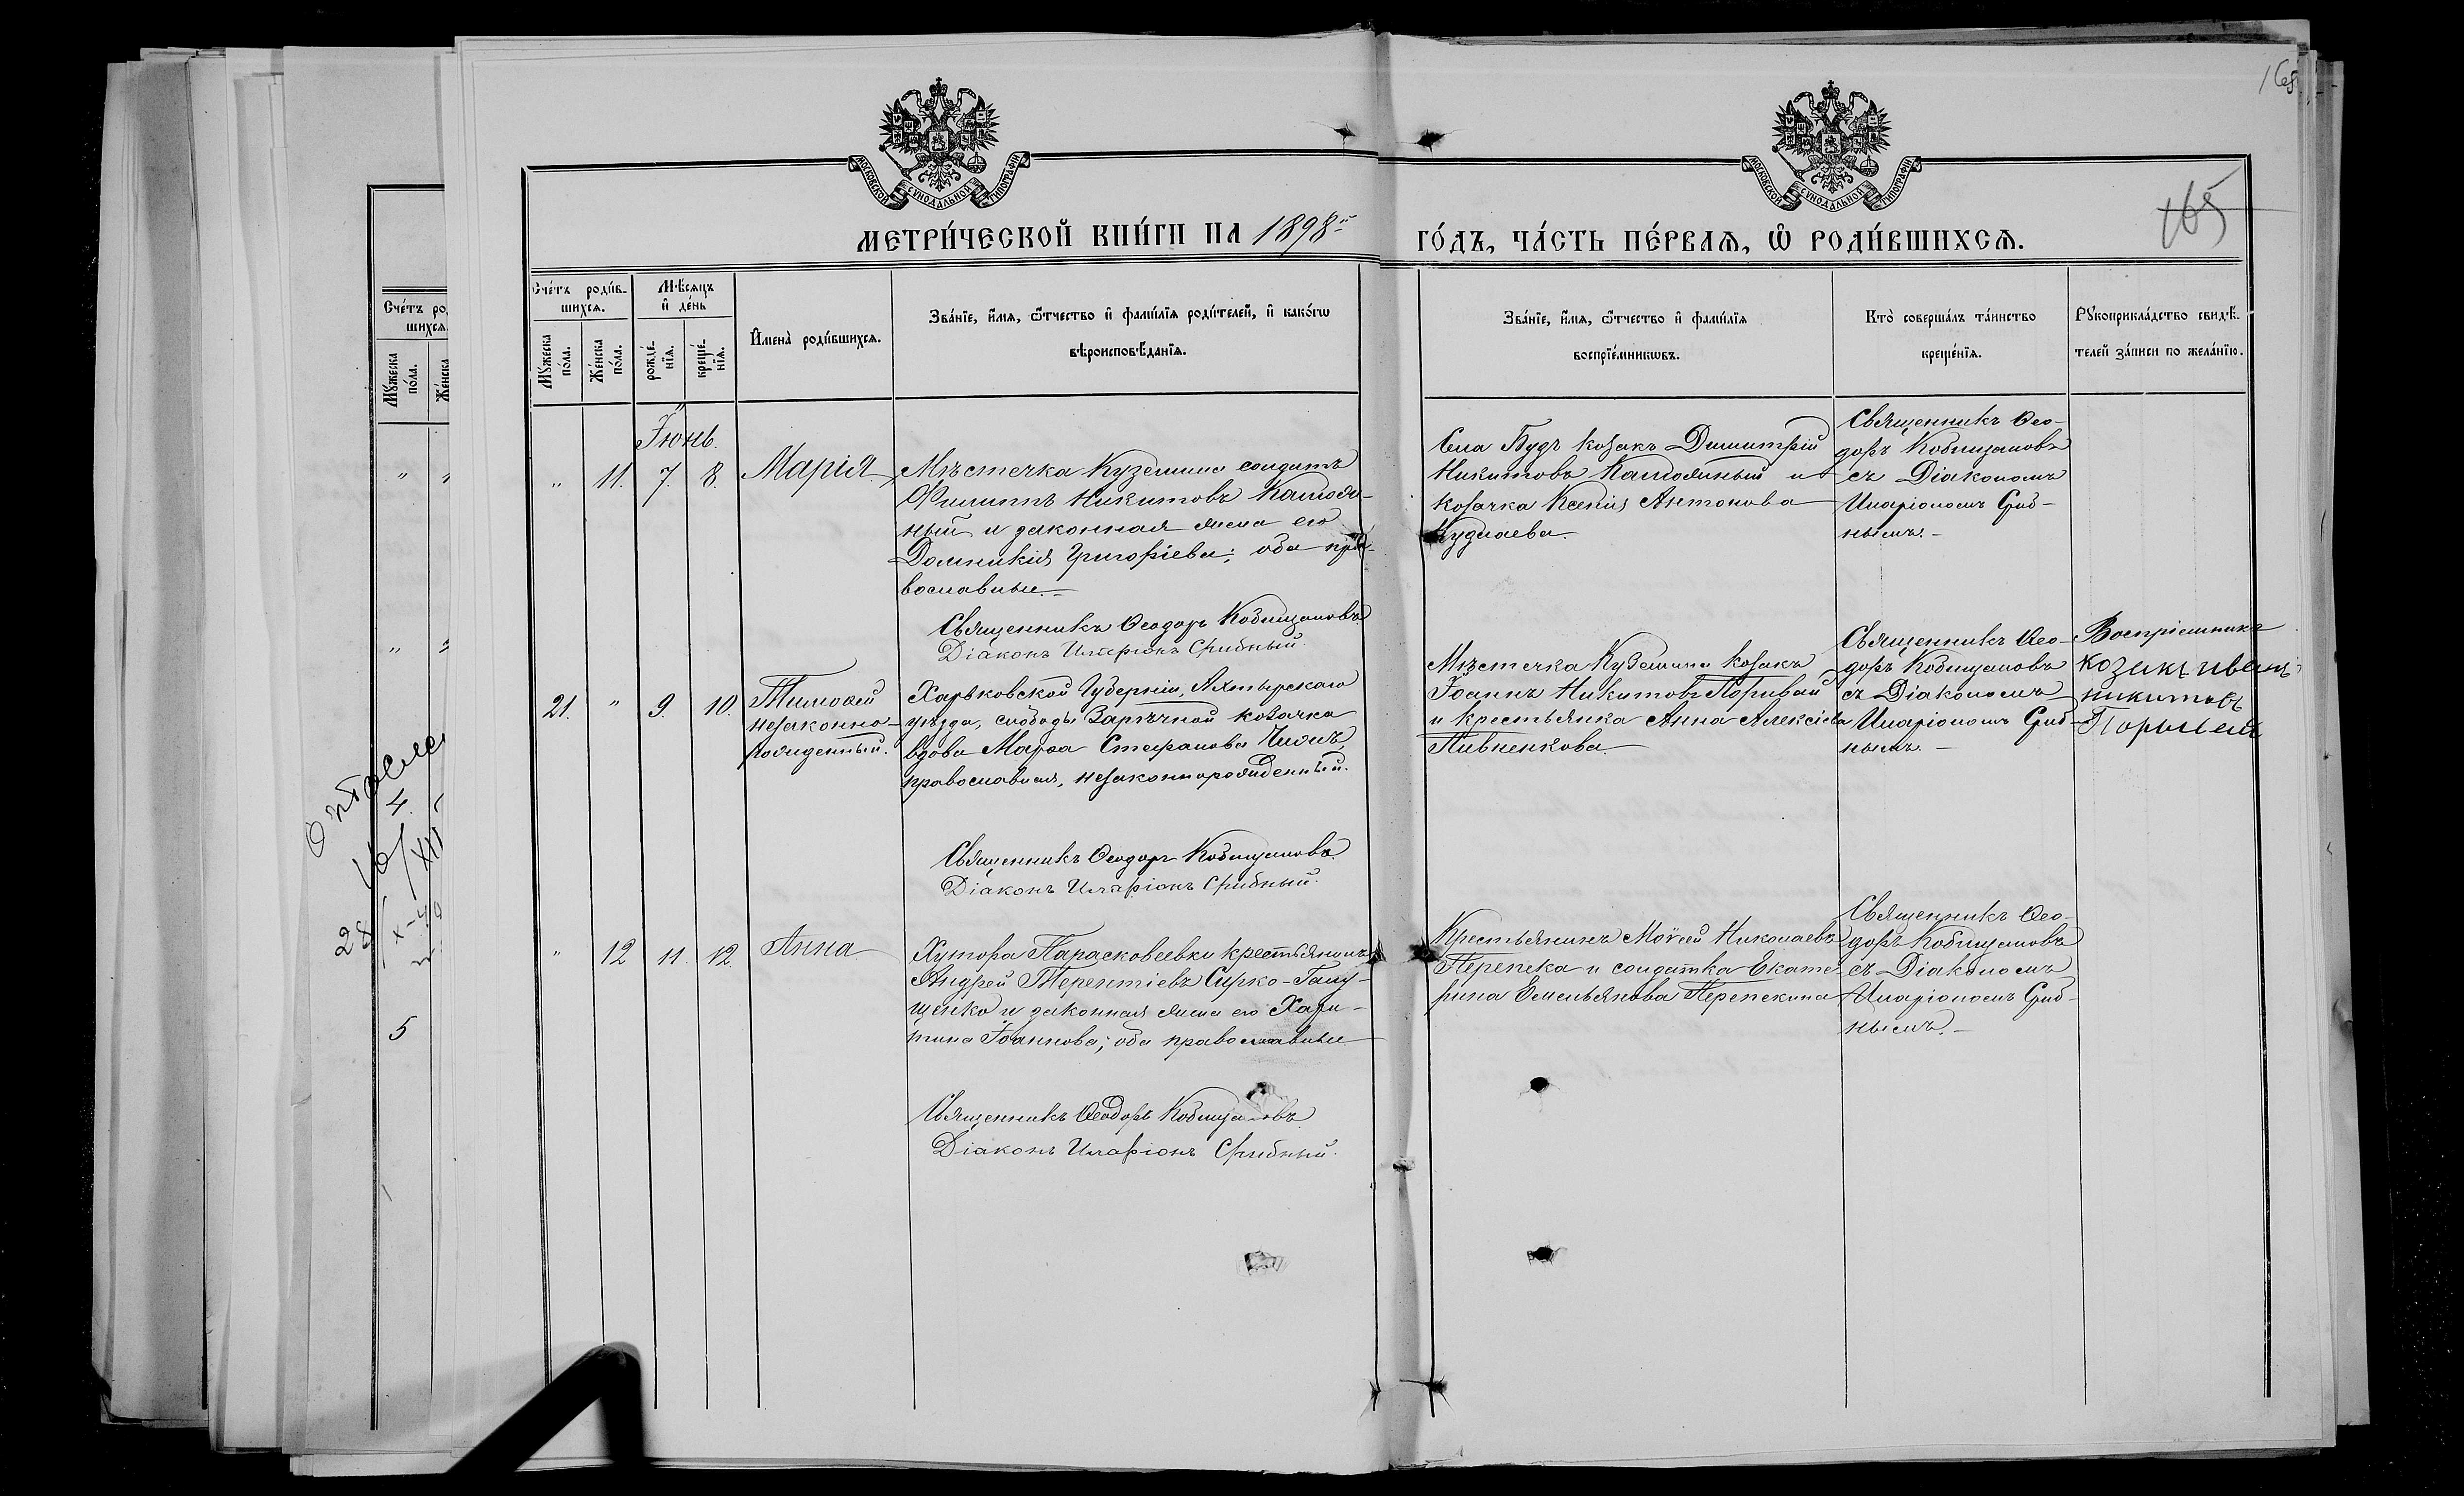 165
165
МОСКОВСКОЙ СѴНОДАЛЬНОЙ ТИПОГРАФІИ
МОСКОВСКОЙ СѴНОДАЛЬНОЙ ТИПОГРАФІИ
МЕТРИ́ЧЕСКОЙ КНИ́ГИ НА 1898й
ГО́ДЪ, ЧА́СТЬ ПЕ́РВАѦ, Ѡ РОДИ́ВШИХСѦ.
Сче́тъ роди́в-
шихсѧ.
Мꙋ́жеска по́ла.
Же́нска по́ла.
Мѣ́сѧцъ и҆ де́нь
рожде́-нїѧ.
креще́-нїѧ.
И҆мена̀ роди́вшихсѧ.
Зва́нїе, и҆́мѧ, ѻ҆́тчество и҆ фами́лїѧ роди́телей, и҆ како́гѡ
вѣроисповѣ́данїѧ.
Зва́нїе, и҆́мѧ, ѻ҆́тчество и҆ фами́лїѧ
воспрїе́мникѡвъ.
Кто̀ соверша́лъ та́инство
креще́нїѧ.
Рꙋкоприкла́дство свидѣ́-
телей за́писи по жела́нїю.
Іюнь.
" 11. 7. 8. Марія
Мѣстечка Куземина солдатъ
Филиппъ Никитовъ Каплоя-
ный и законная жена его
Домникія Григоріева; оба пра-
вославные.-
Священникъ Ѳеодоръ Кобищановъ
Діаконъ Иларіонъ Срибный.
Села Будъ козакъ Димитрій
Никитовъ и
козачка Ксенія Антонова
Священникъ Ѳео-
доръ Кобищановъ
съ Діакономъ
Иларіономъ Сриб-
нымъ.-
21. " 9. 10. Тимоѳей
незаконно-
рожденный.
Харьковской Губерніи, Ахтырскаго
уѣзда, слободы Зарѣчной козачка
вдова Марѳа Стефанова
православная, незаконнорожденный.
Священникъ Ѳеодоръ Кобищановъ.
Діаконъ Иларіонъ Срибный.
Мѣстечка Куземина козакъ
Іоаннъ Никитовъ Поривай
и крестьянка Анна Алексіева
Пивненкова
Священникъ Ѳео-
доръ Кобищановъ
съ Діакономъ
Иларіономъ Сриб-
нымъ.-
Воспріемникъ
козакъ иванъ
никитовъ
" 12 11. 12. Анна
Хутора Парасковеевки крестьянинъ
Андрей Терентіевъ Сирко-Галу-
щенко и законная жена его Хари-
тина Іоаннова; оба православные
Священникъ Ѳеодоръ Кобищановъ
Діаконъ Иларіонъ Срибный.
Крестьянинъ Мойсей Николаевъ
Перепека и солдатка Екате-
рина Емельянова Перепекина
Священникъ Ѳео-
доръ Кобищановъ
съ Діакономъ
Иларіономъ Сриб-
нымъ.-
Сче́тъ ро
шихсѧ
Мꙋ́жеска по́ла.
5